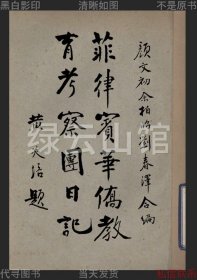 黑白影印 清晰如图 不是原书
顏文初佘柏昭劉春澤合編
菲律賓華僑教
育考察團日記
黃炎培題
绿云山馆
代寻图书